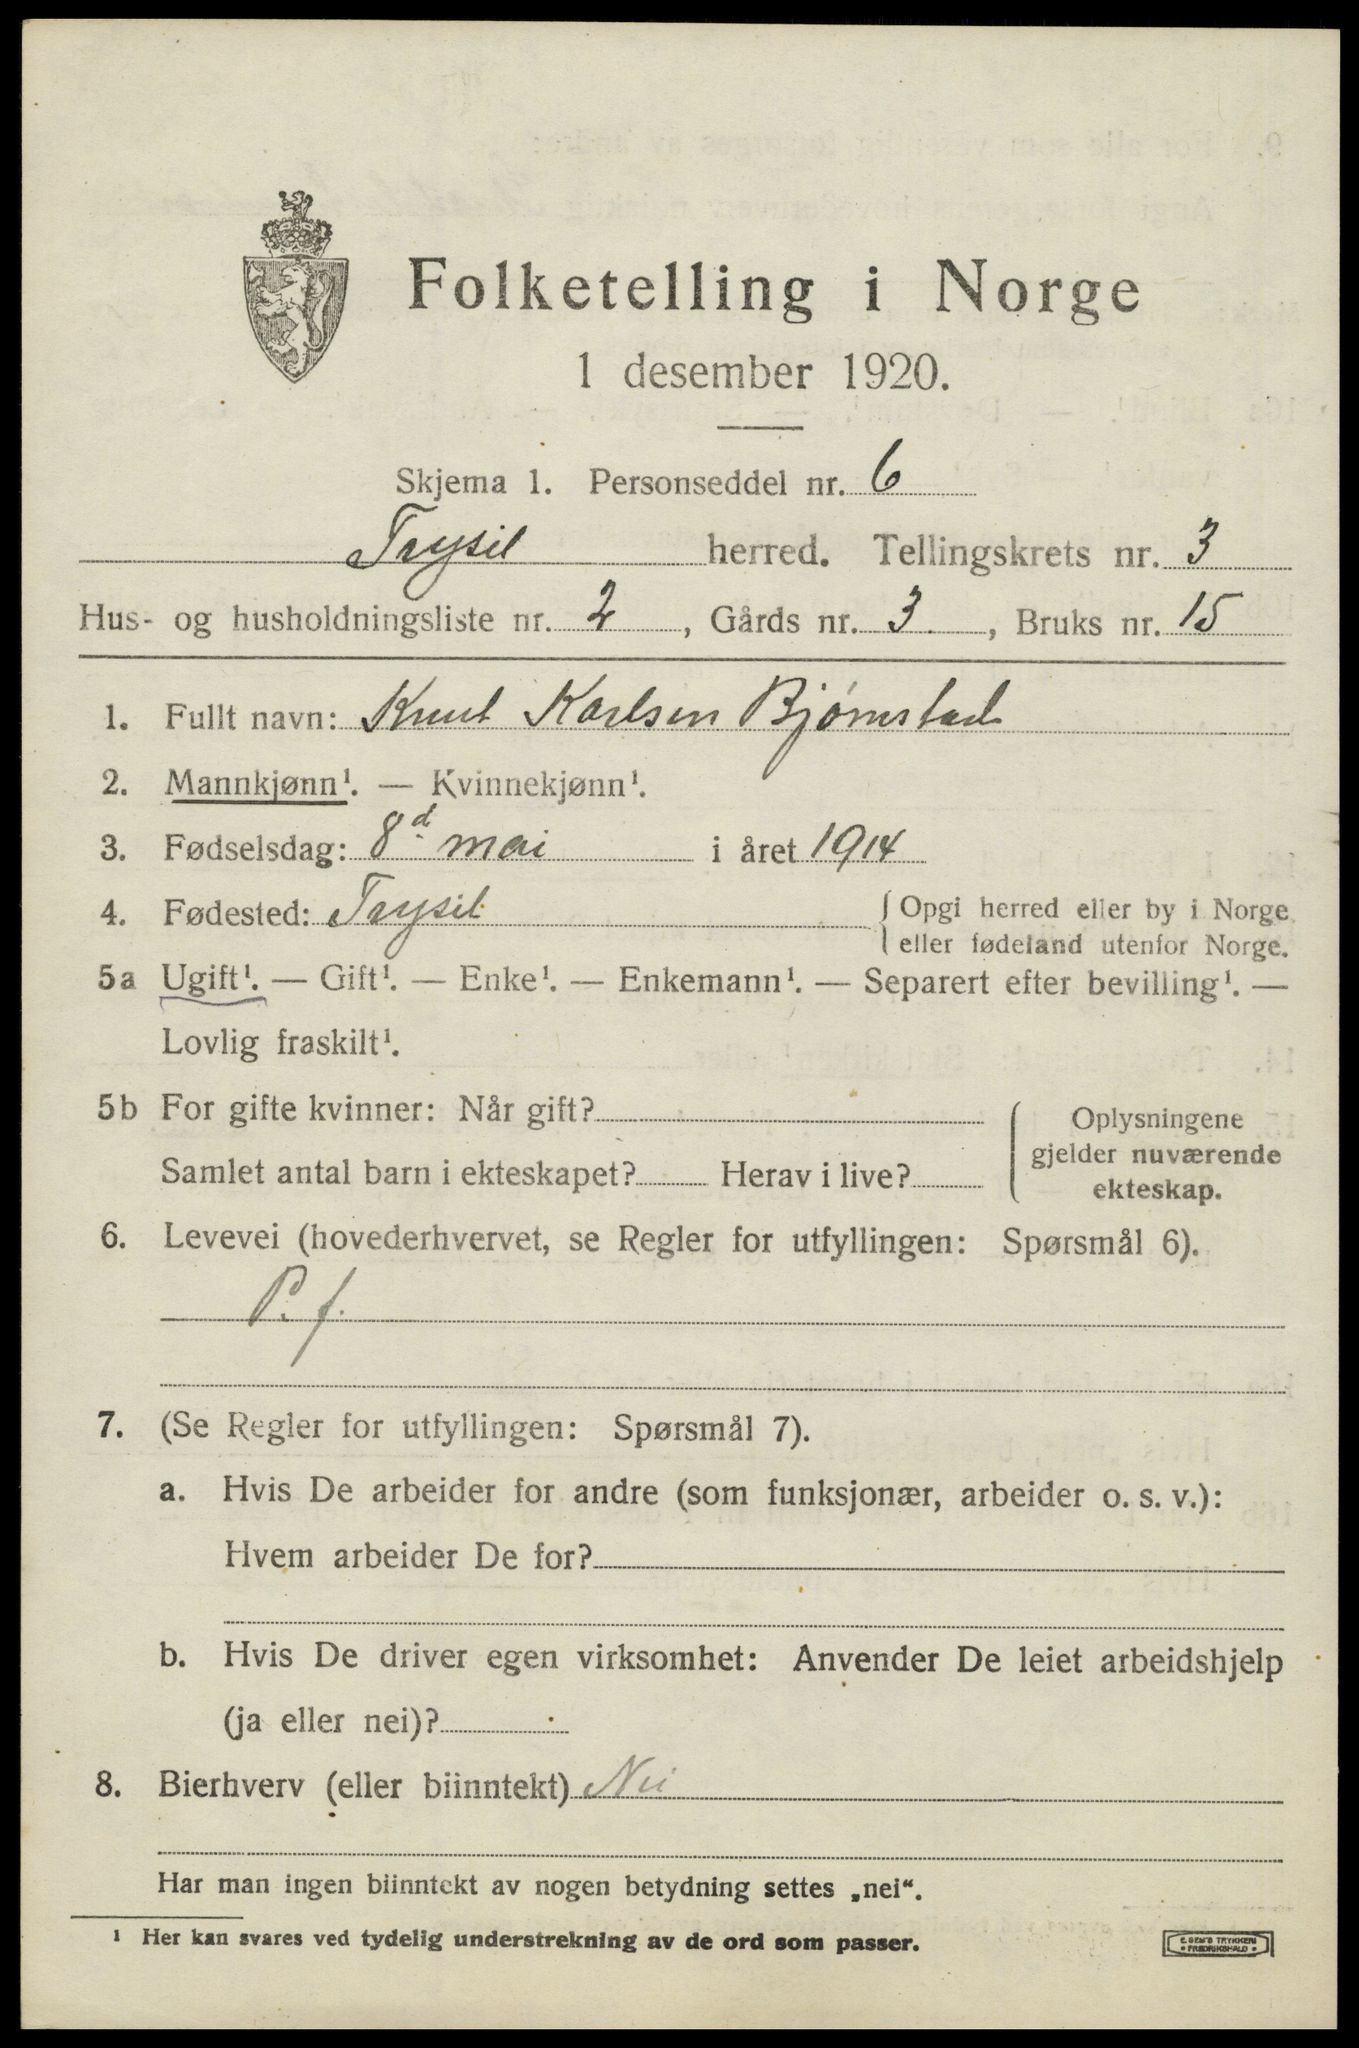 Folketelling i Norge
1 desember 1920.
Skjema 1. Personseddel nr. 6
Trysil herred. Tellingskrets nr. 3
Hus- og husholdningsliste nr. 2, Gårds nr. 3, Bruks nr. 15
1. Fullt navn: Knut Karlsen Bjørnstad
2. Mannkjønn¹. — Kvinnekjønn¹.
3. Fødselsdag: 8d mai i året 1914
4. Fødested: Trysil { Opgi herred eller by i Norge
eller fødeland utenfor Norge.
5a Ugift¹. — Gift¹. — Enke¹. — Enkemann¹. — Separert efter bevilling¹. —
Lovlig fraskilt¹.
5b For gifte kvinner: Når gift?
Samlet antal barn i ekteskapet? Herav i live?
Oplysningene
gjelder nuværende
ekteskap.
6. Levevei (hovederhvervet, se Regler for utfyllingen: Spørsmål 6).
P. f.
7. (Se Regler for utfyllingen: Spørsmål 7).
a. Hvis De arbeider for andre (som funksjonær, arbeider o. s. v.):
Hvem arbeider De for?
b. Hvis De driver egen virksomhet: Anvender De leiet arbeidshjelp
(ja eller nei)?
8. Bierhverv (eller biinntekt) Nei
Har man ingen biinntekt av nogen betydning settes „nei“.
¹ Her kan svares ved tydelig understrekning av de ord som passer.
E. SEM'S TRYKKERI
• FREDRIKSHALD •